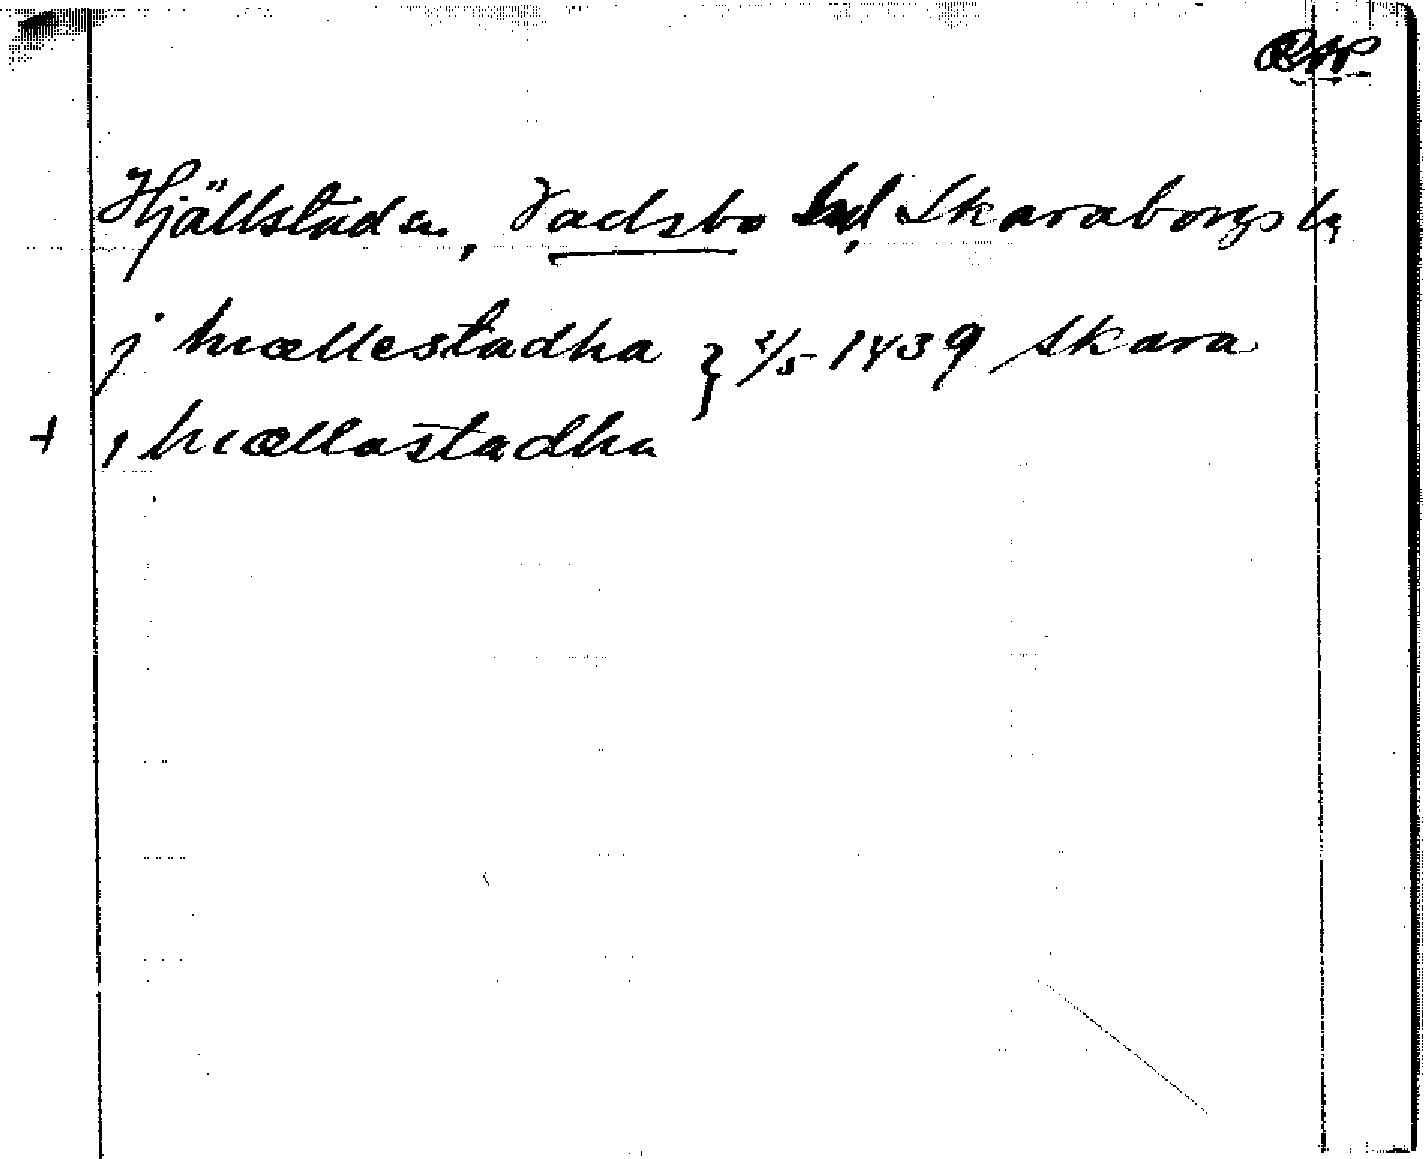 RAP
Hjällstaden, Vadsbo hd, Skaraborgs l.
j hiællestadha } 2/5 1439 Skara
+ j hiællastadha